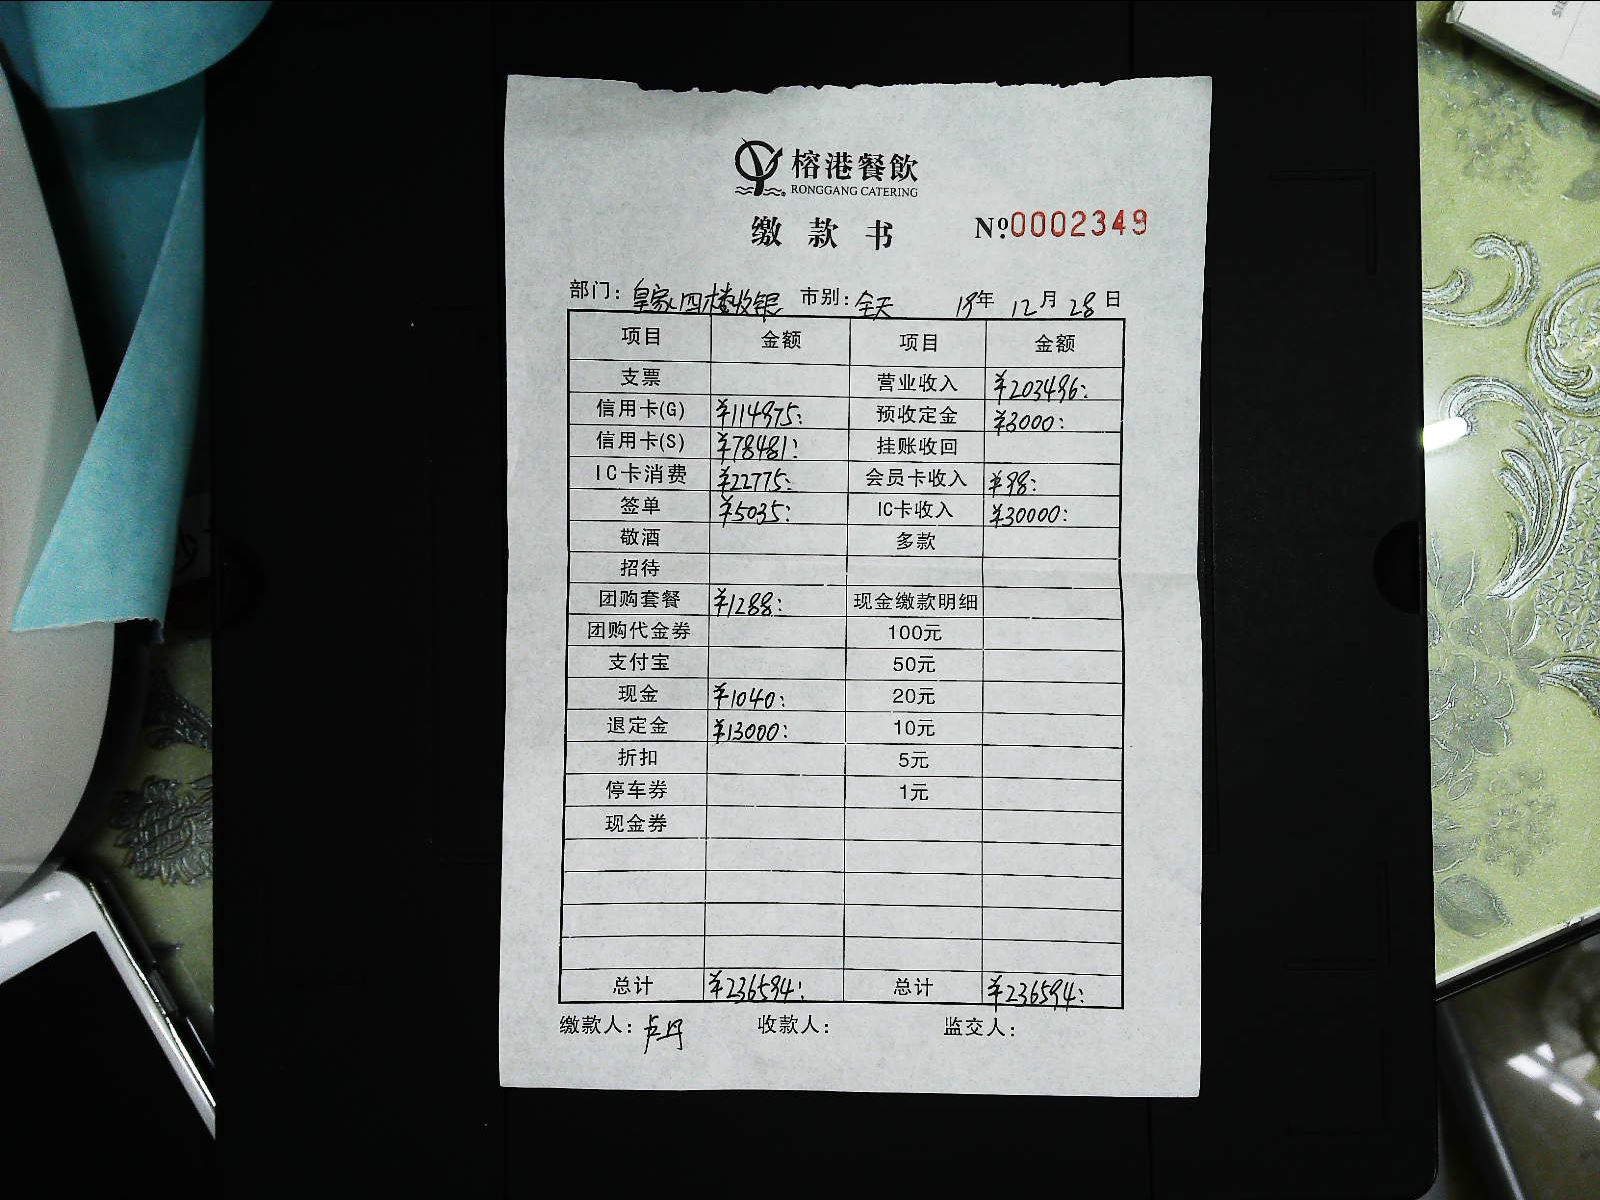 榕港餐飲
RONGGANG CATERING
缴款书 Nº0002349
部门：皇家四楼收银 市别：全天 19年 12月 28日
项目 金额 项目 金额
支票 营业收入 ¥203496:
信用卡(G) ¥114975: 预收定金 ¥3000:
信用卡(S) ¥78481: 挂账收回
IC卡消费 ¥22775: 会员卡收入 ¥98:
签单 ¥5035: IC卡收入 ¥30000:
敬酒 多款
招待
团购套餐 ¥1288: 现金缴款明细
团购代金券 100元
支付宝 50元
现金 ¥1040: 20元
退定金 ¥13000: 10元
折扣 5元
停车券 1元
现金券
总计 ¥236594: 总计 ¥236594:
缴款人：卢丹 收款人： 监交人：